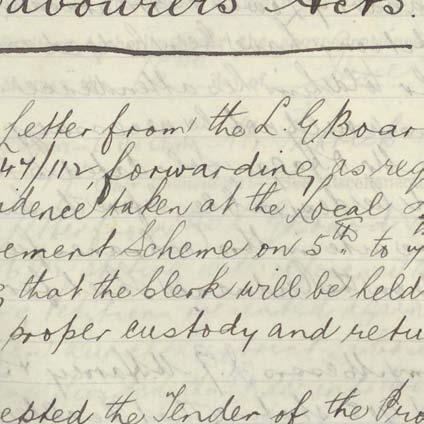 abourers Acts.
Letter from the L. G. Boar
47/112 forwarding, as req
idence taken at the Local
ement Scheme on 5th to
that the Clerk will be held
proper custody and retu
epted the Tender of the Pro